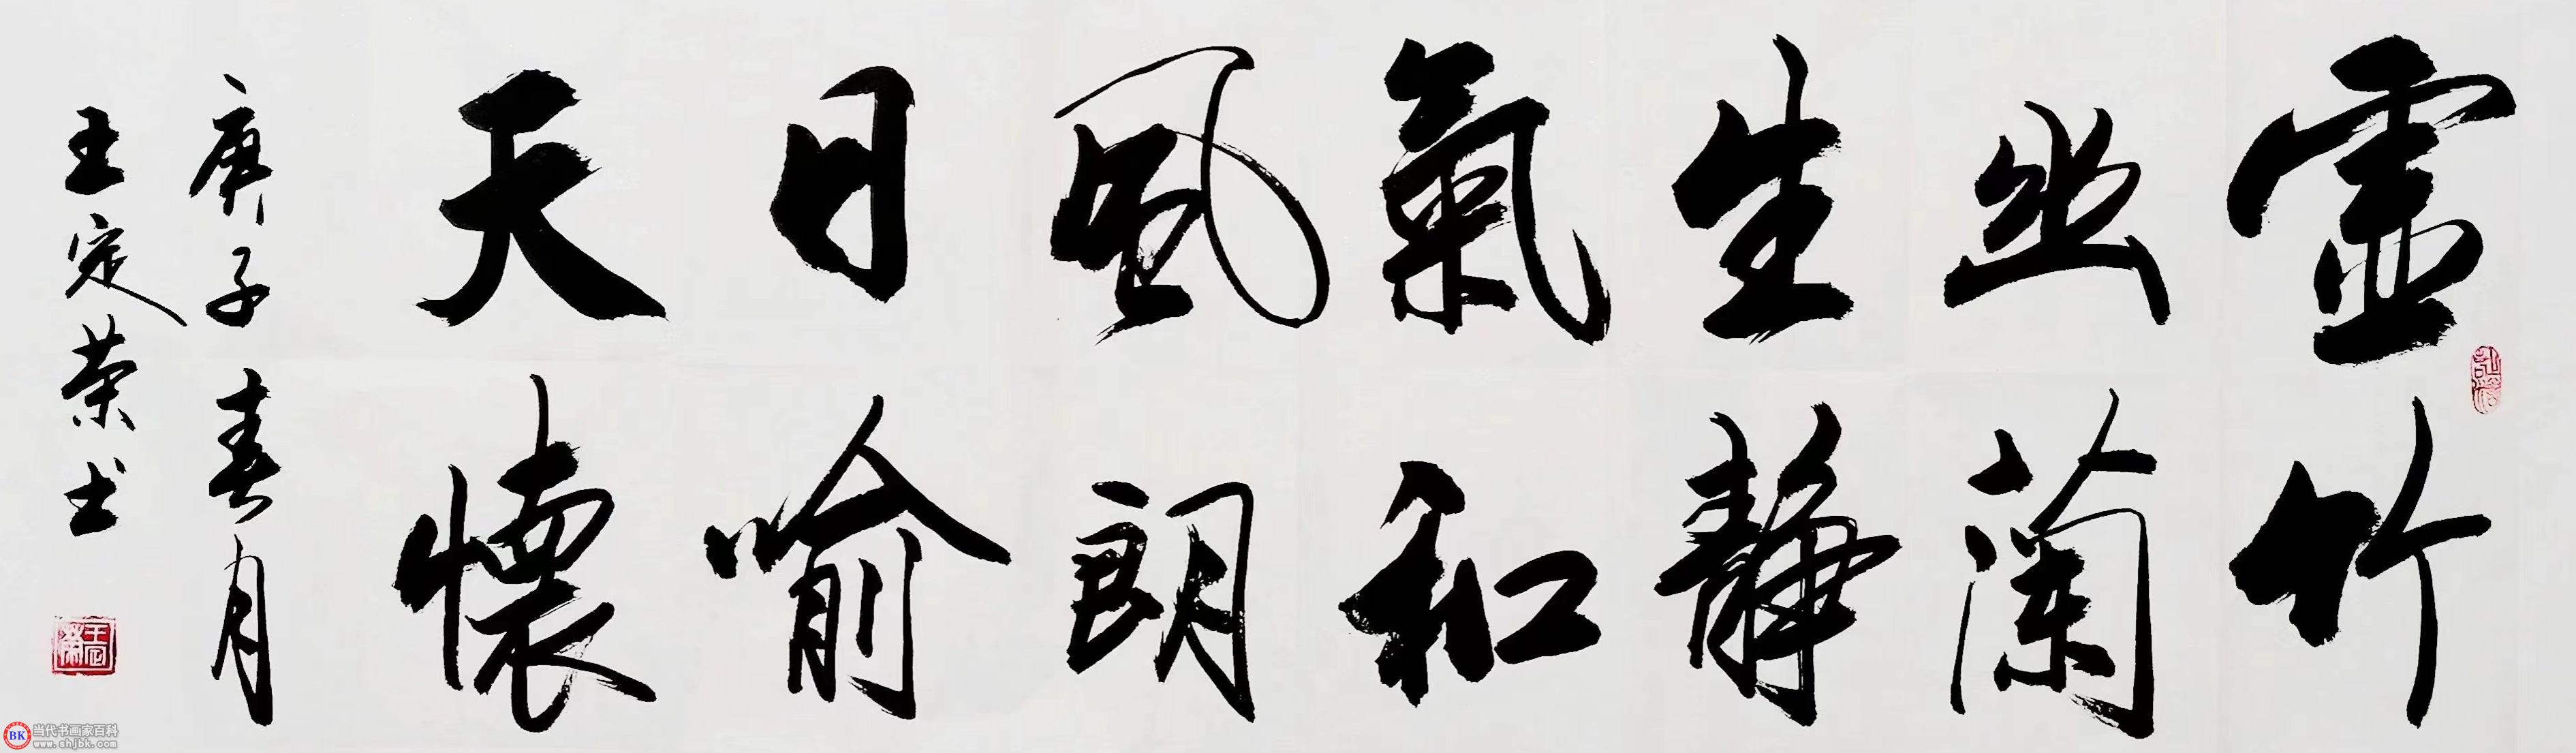 虛竹
幽蘭
生靜
氣和
風朗
日喻
天懷
庚子春月
王定荣书
王定榮
BK 当代书画家百科
www.shjbk.com